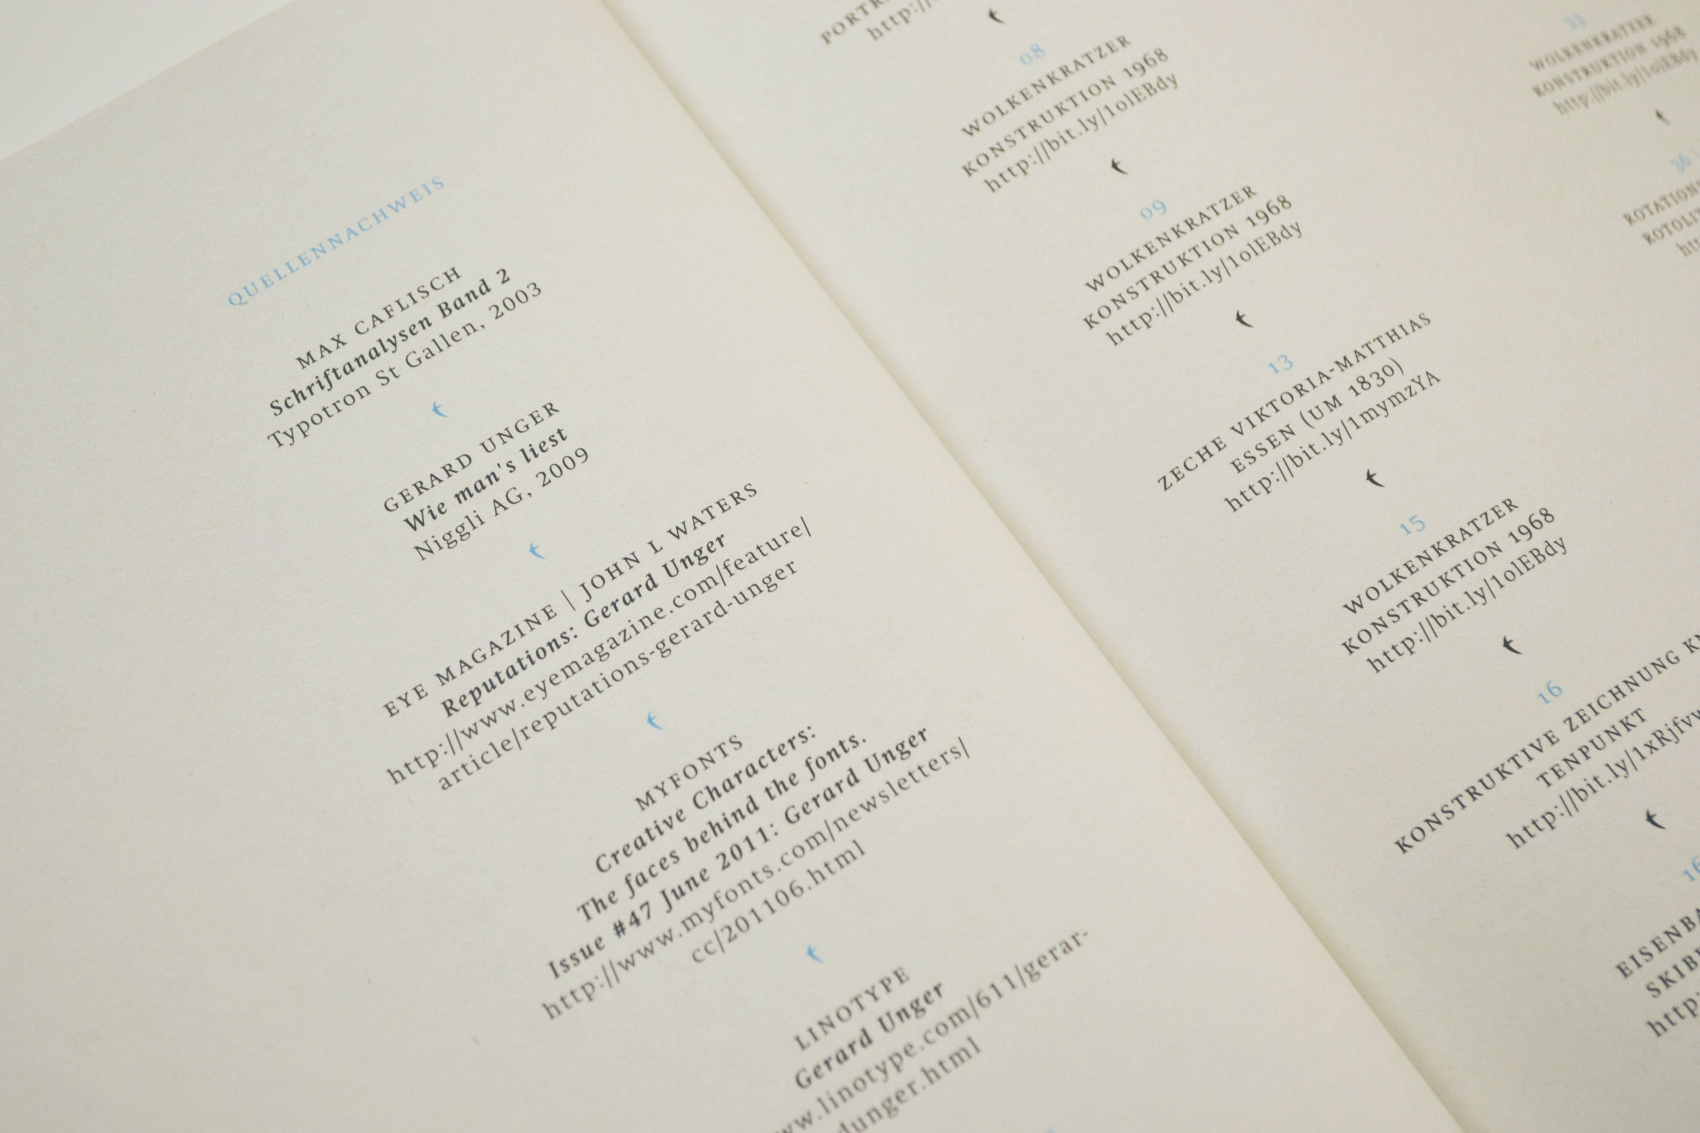 QUELLENNACHWEIS
MAX CAFLISCH
Schriftanalysen Band 2
Typotron St Gallen, 2003
GERARD UNGER
Wie man's liest
Niggli AG, 2009
EYE MAGAZINE | JOHN L WATERS
Reputations: Gerard Unger
http://www.eyemagazine.com/feature/
article/reputations-gerard-unger
MYFONTS
Creative Characters:
The faces behind the fonts.
Issue #47 June 2011: Gerard Unger
http://www.myfonts.com/newsletters/
cc/201106.html
LINOTYPE
Gerard Unger
ww.linotype.com/611/gerar-
dunger.html
http://
08
WOLKENKRATZER
KONSTRUKTION 1968
http://bit.ly/1olEBdy
09
WOLKENKRATZER
KONSTRUKTION 1968
http://bit.ly/1olEBdy
13
ZECHE VIKTORIA-MATTHIAS
ESSEN (UM 1830)
http://bit.ly/1mymzYA
15
WOLKENKRATZER
KONSTRUKTION 1968
http://bit.ly/1olEBdy
16
KONSTRUKTIVE ZEICHNUNG KN
TENPUNKT
http://bit.ly/1xRjfvw
16
EISENBA
SKIB
http:
WOLKENKRATZER
KONSTRUKTION 1968
http://bit.ly/1olEBdy
36
ROTATION
ROTOLI